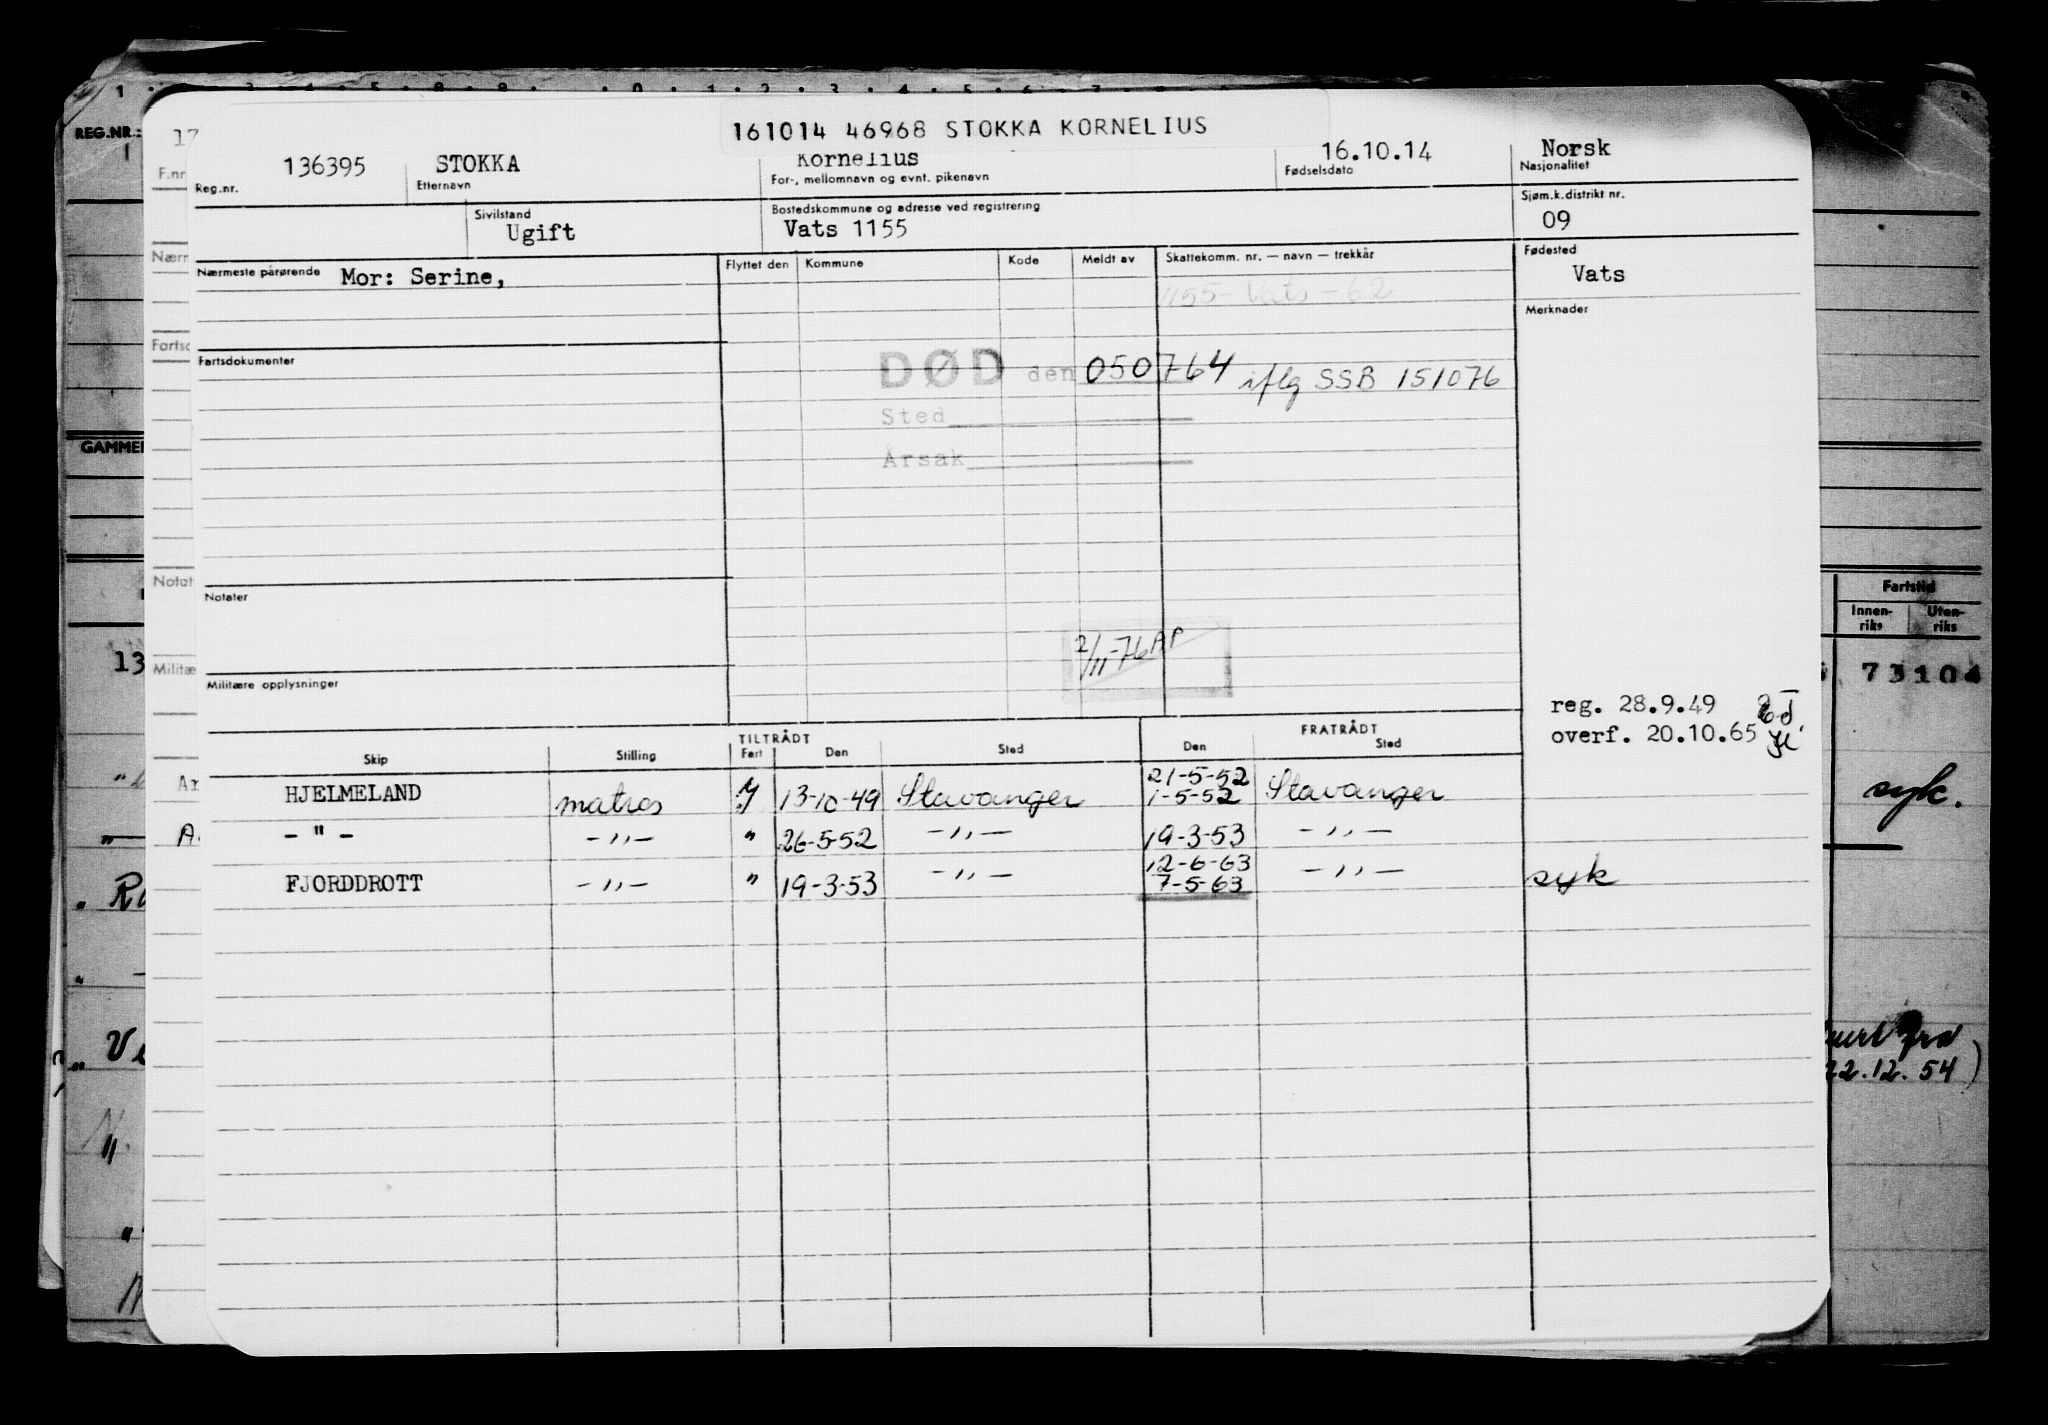 161014 46968 STOKKA KORNELIUS
136395 STOKKA Kornelius 16.10.14 Norsk
Reg.nr. Etternavn For-, mellomnavn og evnt. pikenavn Fødselsdato Nasjonalitet
Sivilstand Bostedskommune og adresse ved registrering Sjøm.k.distrikt nr.
Ugift Vats 1155 09
Nærmeste pårørende Mor: Serine, Flyttet den Kommune Kode Meldt av Skattekomm. nr. — navn — trekkår Fødested
Vats
1155- Vats - 62
Merknader
Fartsdokumenter
DØD den 050764 iflg SSB 151076
Sted
Årsak
Notater
2/11-76 AP
Militære opplysninger
reg. 28.9.49
overf. 20.10.65
TILTRÅDT FRATRÅDT
Skip Stilling Fart Den Sted Den Sted
21-5-52
HJELMELAND matros 13-10-49 Stavanger 1-5-52 Stavanger
- " - -"- " 26-5-52 -"- 19-3-53 -"-
12-6-63
FJORDDROTT -"- " 19-3-53 -"- 7-5-63 -"- syk
REG.NR.:
17
F.nr
Nærr
Fartsd
GAMMEL
Notat
13
Militæ
Fartstid
Innen-riks Uten-riks
73104
syk.
fra
22.12.54)